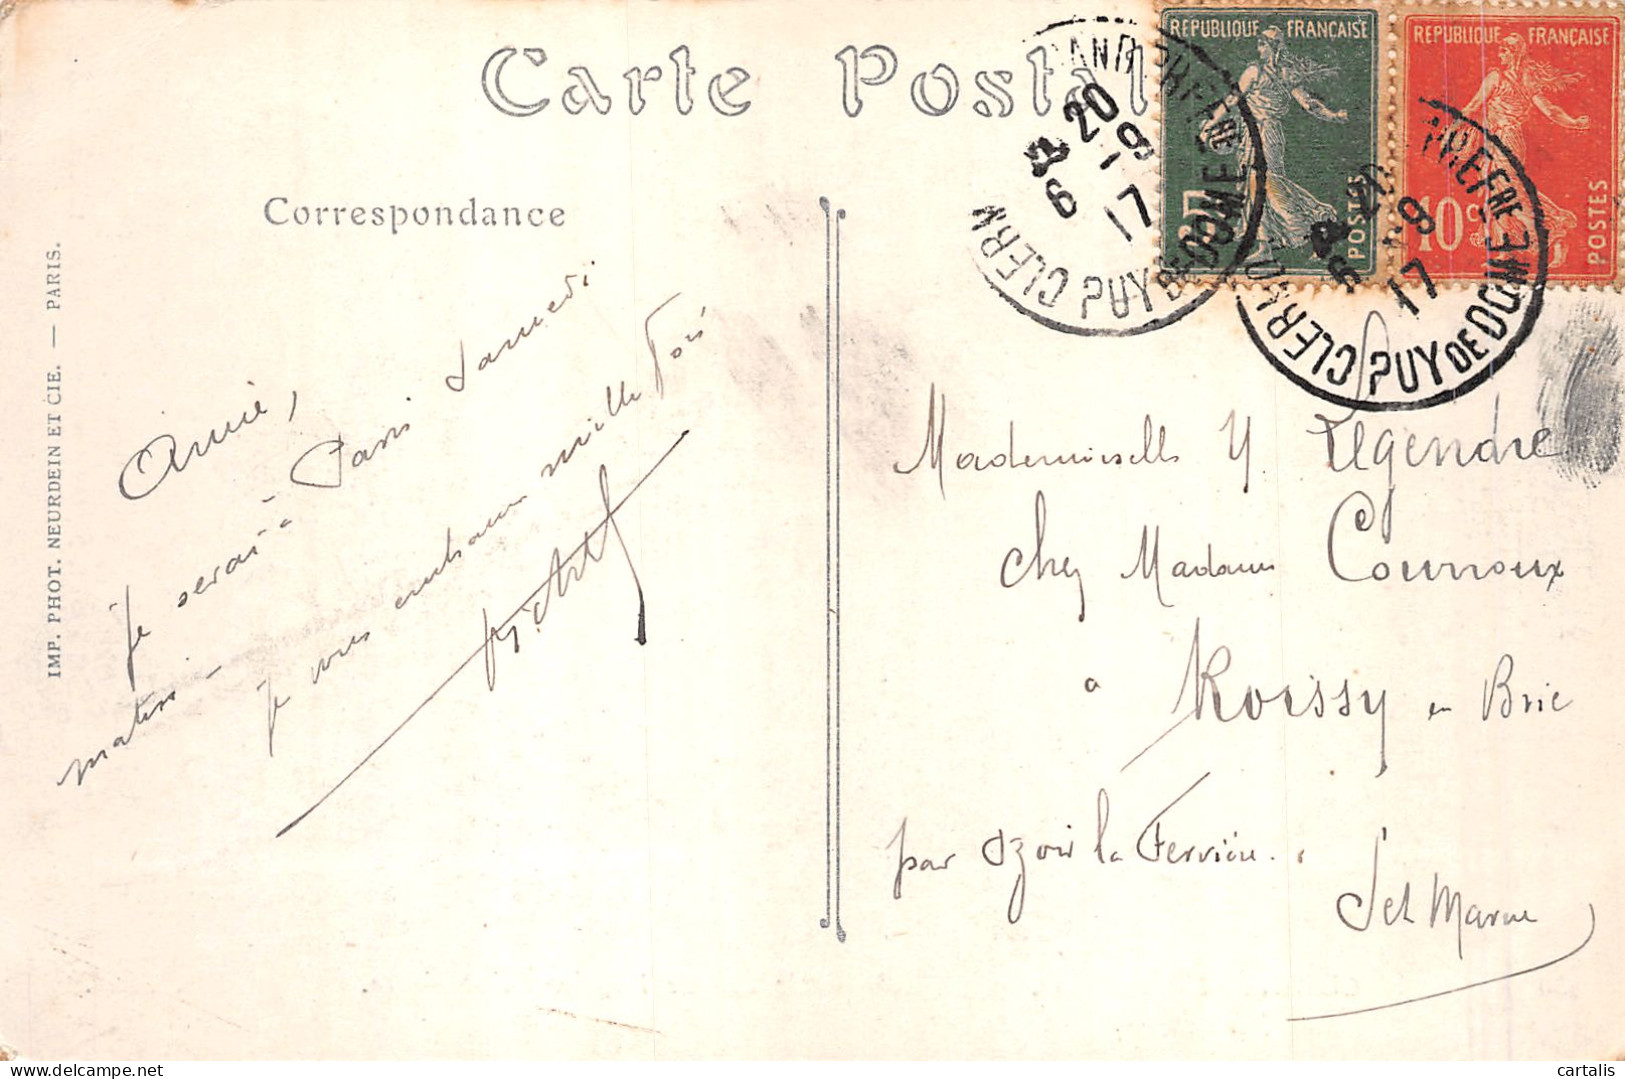 Carte Postal
RÉPUBLIQUE FRANÇAISE
POSTES
RÉPUBLIQUE FRANÇAISE
10c
POSTES
CLERM PUY DE DOME
6 20
-9
17
CLERM PREFRE
PUY DE DOME
6 20
-9
17
Correspondance
IMP. PHOT. NEURDEIN ET CIE. — PARIS.
Amie,
Je serai à Paris Samedi
matin –
Je vous embrasse mille fois
Mademoiselle Y. Legendre
chez Madame Cournoux
à Roissy en Brie
par Ozoir la Ferrière.
Set Marne
cartalis